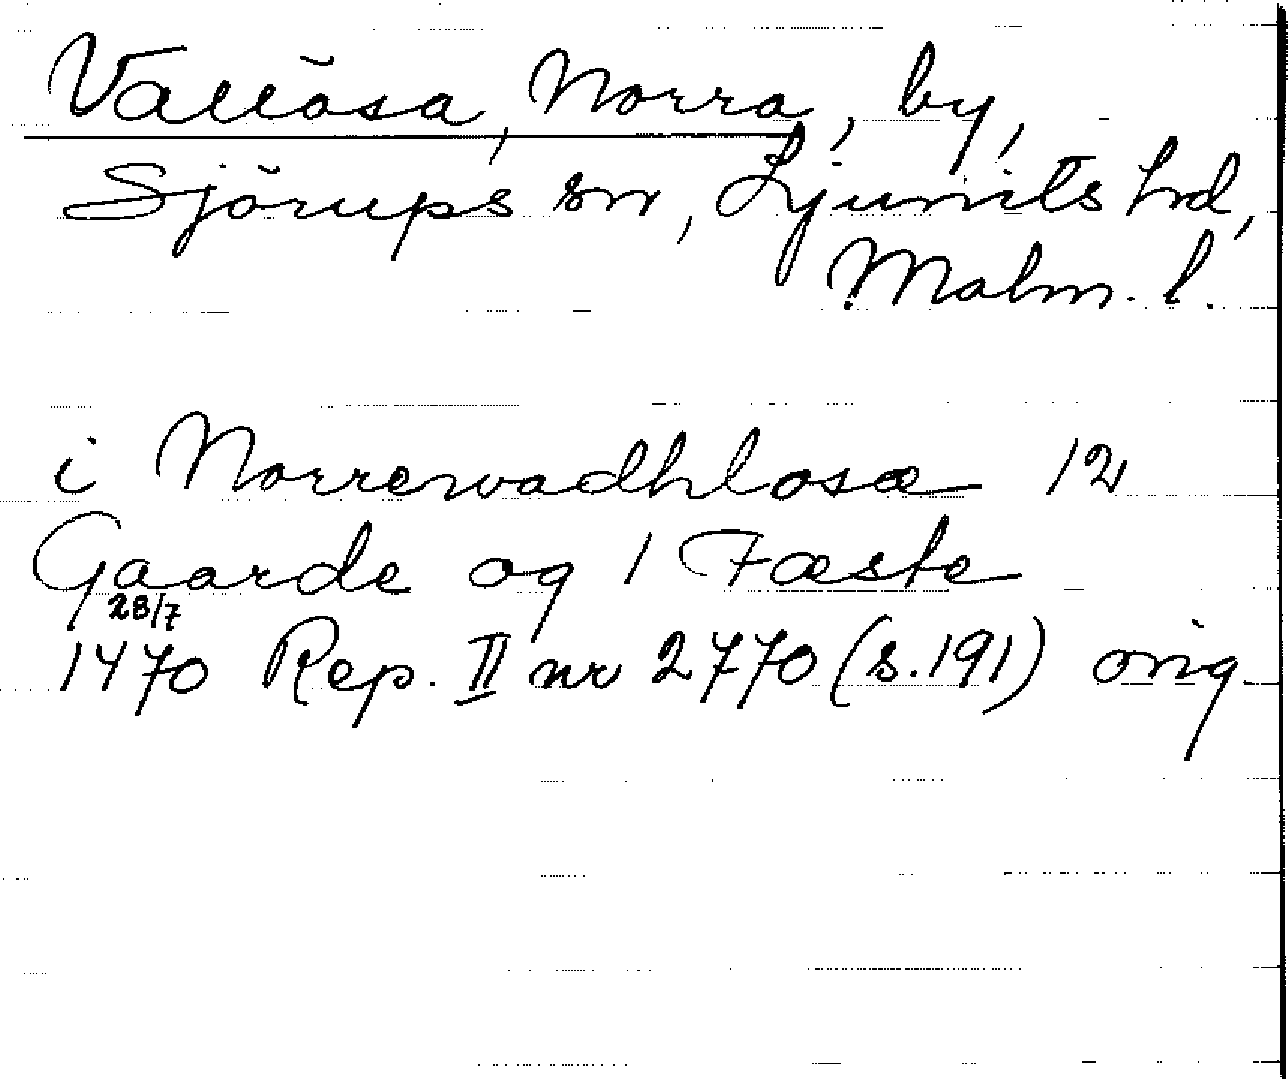 Vallösa, Norra, by,
Sjörups sn, Ljunits hd,
Malm. l.
i Norrervadhlosæ 12
Gaarde og 1 Fæste
28/7
1470 Rep. II nr 2770 (s. 191) orig.